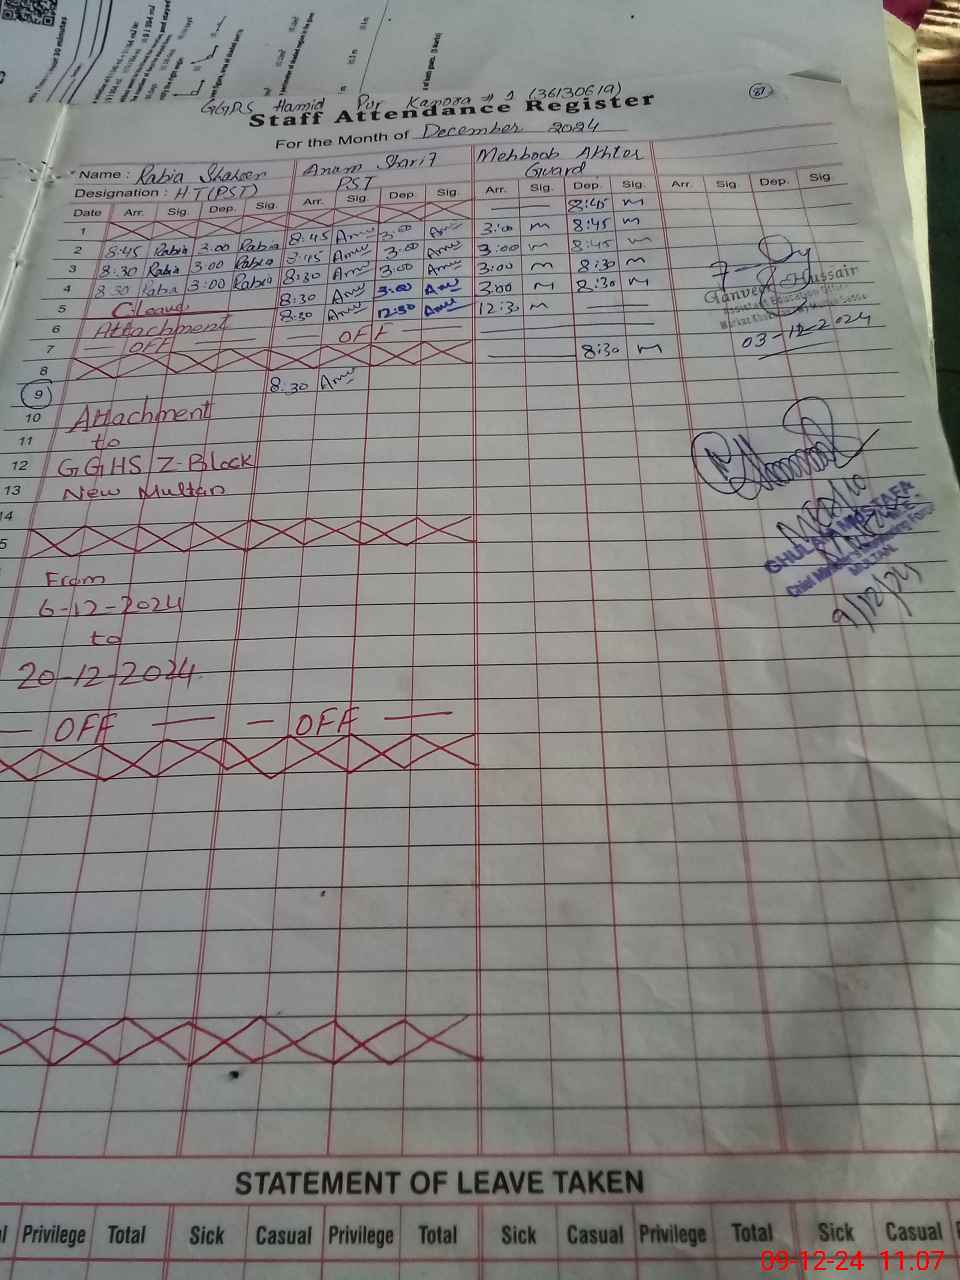 GGPS Hamid Pur Kanora # 1 (36130619)
87
Staff Attendance Register
For the Month of December 2024
Name : Rabia Shaheen Anam Sharif Mehboob Akhtar
Designation : HT (PST) PST Guard
Date Arr. Sig. Dep. Sig. Arr. Sig. Dep. Sig. Arr. Sig. Dep. Sig. Arr. Sig. Dep. Sig.
1 8:45 m
2 8:45 Rabia 3:00 Rabia 8:45 3:00 3:00 m 8:45 m
3 8:30 Rabia 3:00 Rabia 8:45 3:00 3:00 m 8:45 m
4 8:30 Rabia 3:00 Rabia 8:30 3:00 3:00 m 8:30 m
5 C.leave 8:30 3:00 3:00 m 8:30 m
6 Attachment 8:30 12:30 12:30 m
7 OFF OFF
8 8:30 m
9 8:30
Tanveer Hussair
Assistant Education Officer
03-12-2024
10 Attachment
11 to
12 GGHS Z-Block
13 New Multan
14
5
GHULAM MUSTAFA
MULTAN
9/12/24
From
6-12-2024
to
20-12-2024
OFF OFF
STATEMENT OF LEAVE TAKEN
Privilege Total Sick Casual Privilege Total Sick Casual Privilege Total Sick Casual
09-12-24 11:07